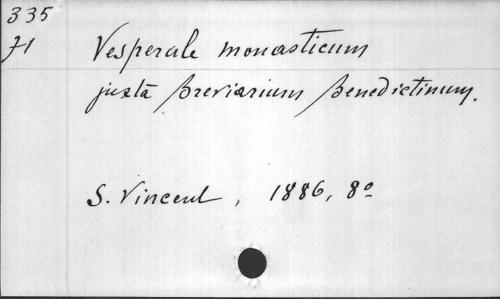 335
H
Vesperale monasticum
juxta Breviarium Benedictinum.
S. Vincent, 1886, 8º